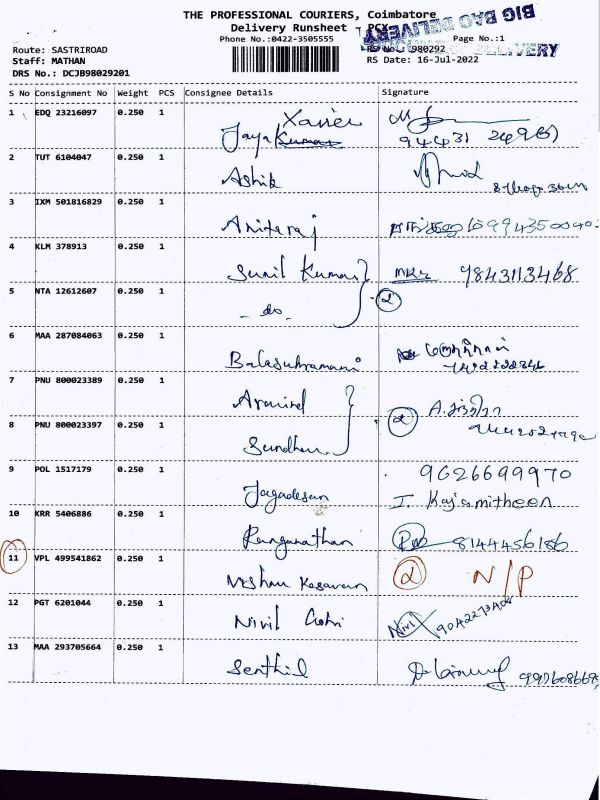 THE PROFESSIONAL COURIERS, Coimbatore
Delivery Runsheet - PCX
BIG BAG DELIVERY
Phone No.:0422-3505555
Page No.:1
Route: SASTRIROAD
RS No.: 980292
DELIVERY
Staff: MATHAN
RS Date: 16-Jul-2022
DRS No.: DCJB98029201
S No Consignment No Weight PCS Consignee Details Signature
1 EDQ 23216097 0.250 1 Xavier
Jaya Kumar 94431
2 TUT 6104047 0.250 1
Ashik
3 IXM 501816829 0.250 1
Anitaraj
4 KLM 378913 0.250 1
Sunil Kumar 9843113468
5 NTA 12612607 0.250 1
- do - 2
6 MAA 287084063 0.250 1
Balasubramani
7 PNU 800023389 0.250 1
Aravind
8 PNU 800023397 0.250 1 2
Sundhar
9 POL 1517179 0.250 1 9626699970
Jagadesan I. Kajamitheen
10 KRR 5406886 0.250 1
Ranganathan 8144456186
11 VPL 499541862 0.250 1 2 N/P
Kesavan
12 PGT 6201044 0.250 1
Nivil Nivi
13 MAA 293705664 0.250 1
Senthil